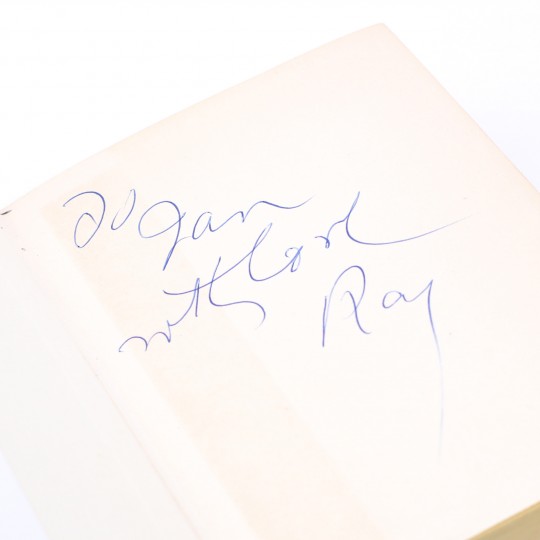 To Jan
with love
Ray